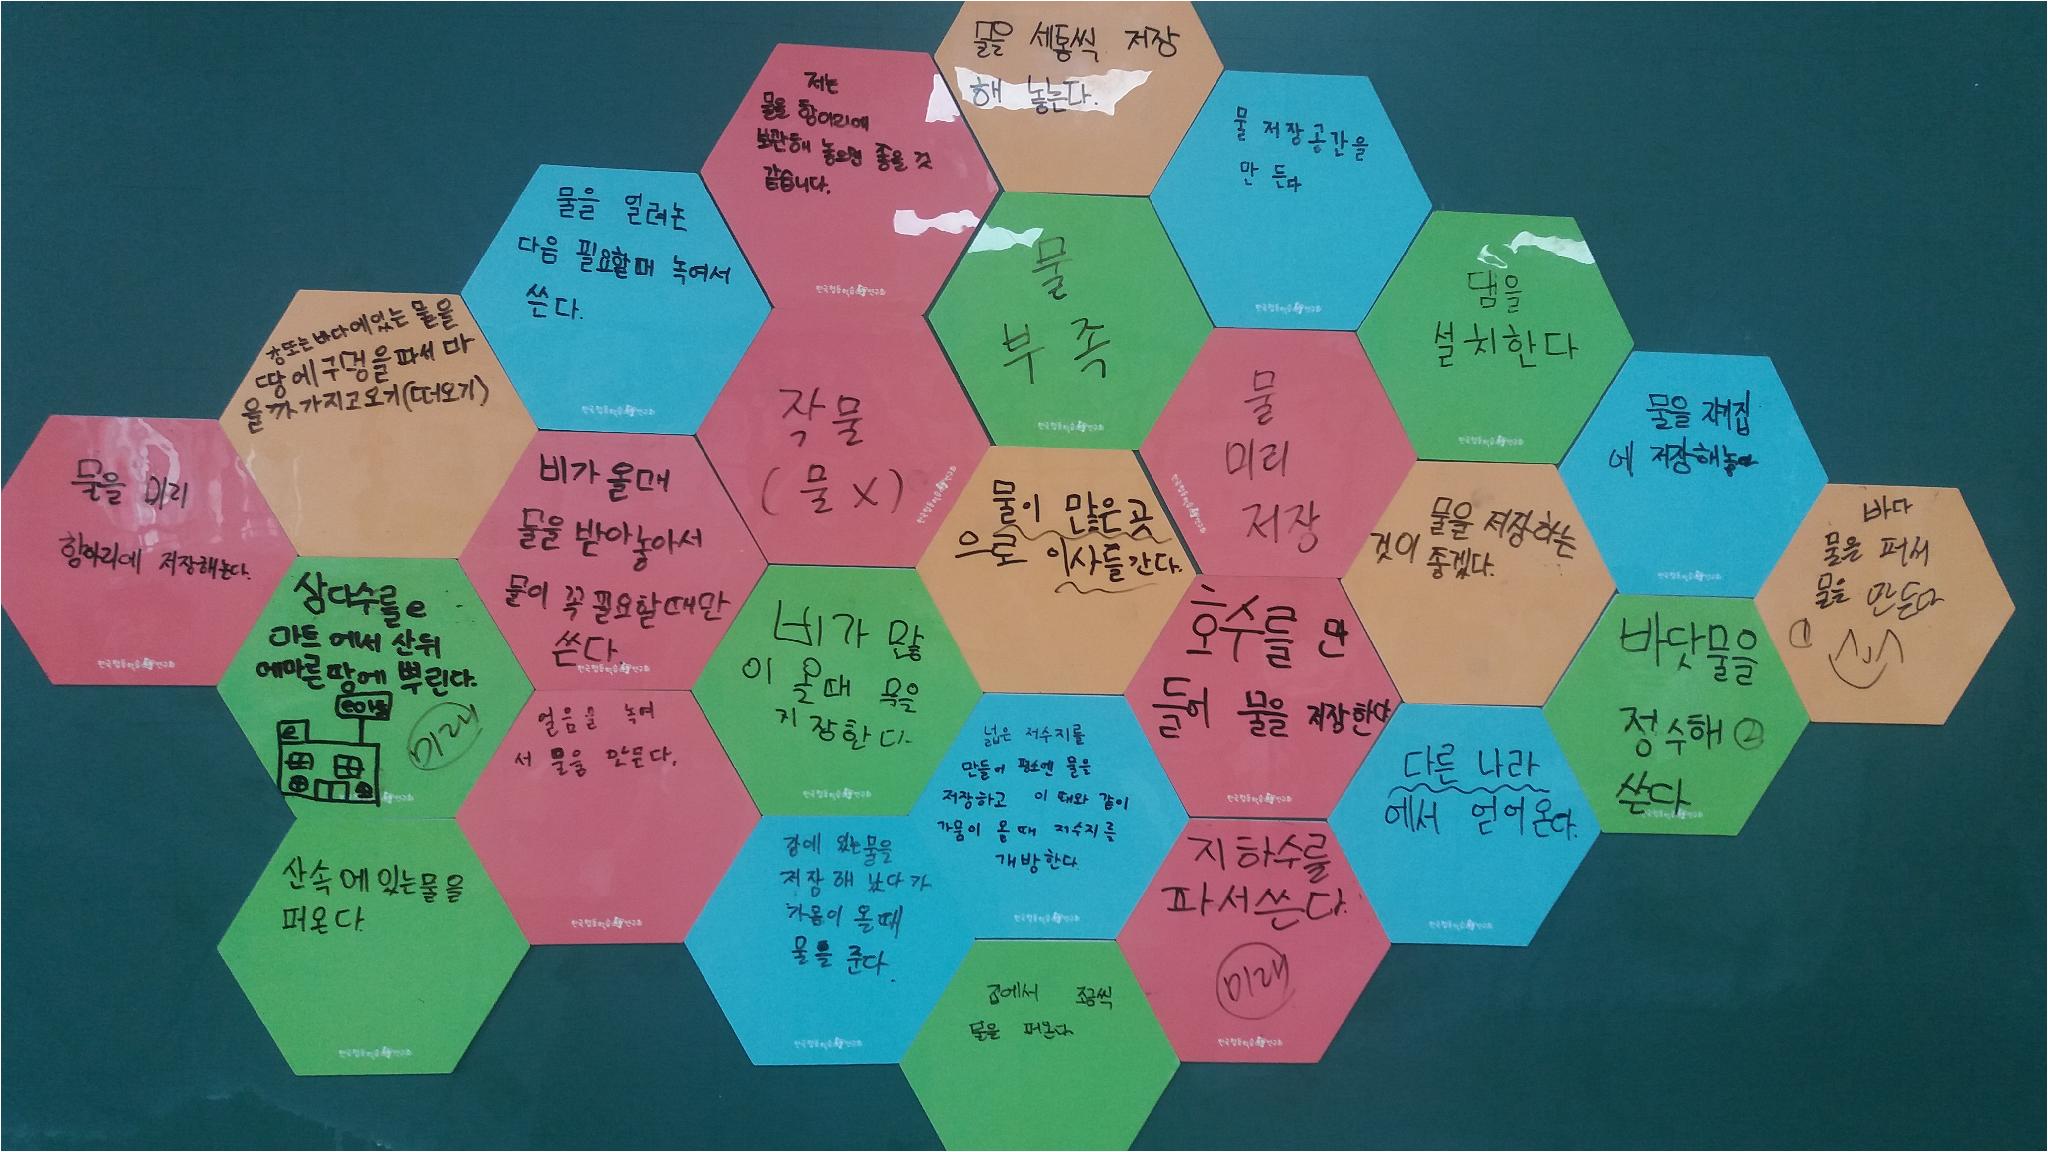 물을 세통씩 저장
해 놓는다.
저는
물을 항아리에
보관해 놓으면 좋을 것
같습니다.
물 저장공간을
만 든다
물을 얼려논
다음 필요할때 녹여서
쓴다.
물
부족
댐을
설치한다
강또는바다에있는 물을
땅에구멍을파서 마
을까가지고오기(떠오기)
작물
(물 X)
물
미리
저장
물을
에 저장해놓
물을 미리
항아리에 저장해논다.
비가 올때
물을 받아놓아서
물이 꼭 필요할때만
쓴다
물이 많은곳
으로 이사들간다.
물을 저장하는
것이 좋겠다.
바다
물을 퍼서
물을 만든다
①
삼다수를e
마트에서 산뒤
에마른땅에 뿌린다.
e마트
e
미래
비가 많
이 올때 묵을
저장한다.
호수를 만
들어 물을 저장한다
바닷물을
정수해 ②
쓴다
얼음을 녹여
서 물을 만든다.
넓은 저수지를
만들어 평소엔 물을
저장하고 이 때와 같이
가뭄이 올 때 저수지를
개방한다
다른 나라
에서 얻어온다.
산속에있는물을
퍼온다.
강에 있는물을
저장해 놨다가
가뭄이 올때
물을 준다.
지하수를
파서쓴다.
미래
집에서 조금씩
물을 퍼온다
한국협동학습연구회